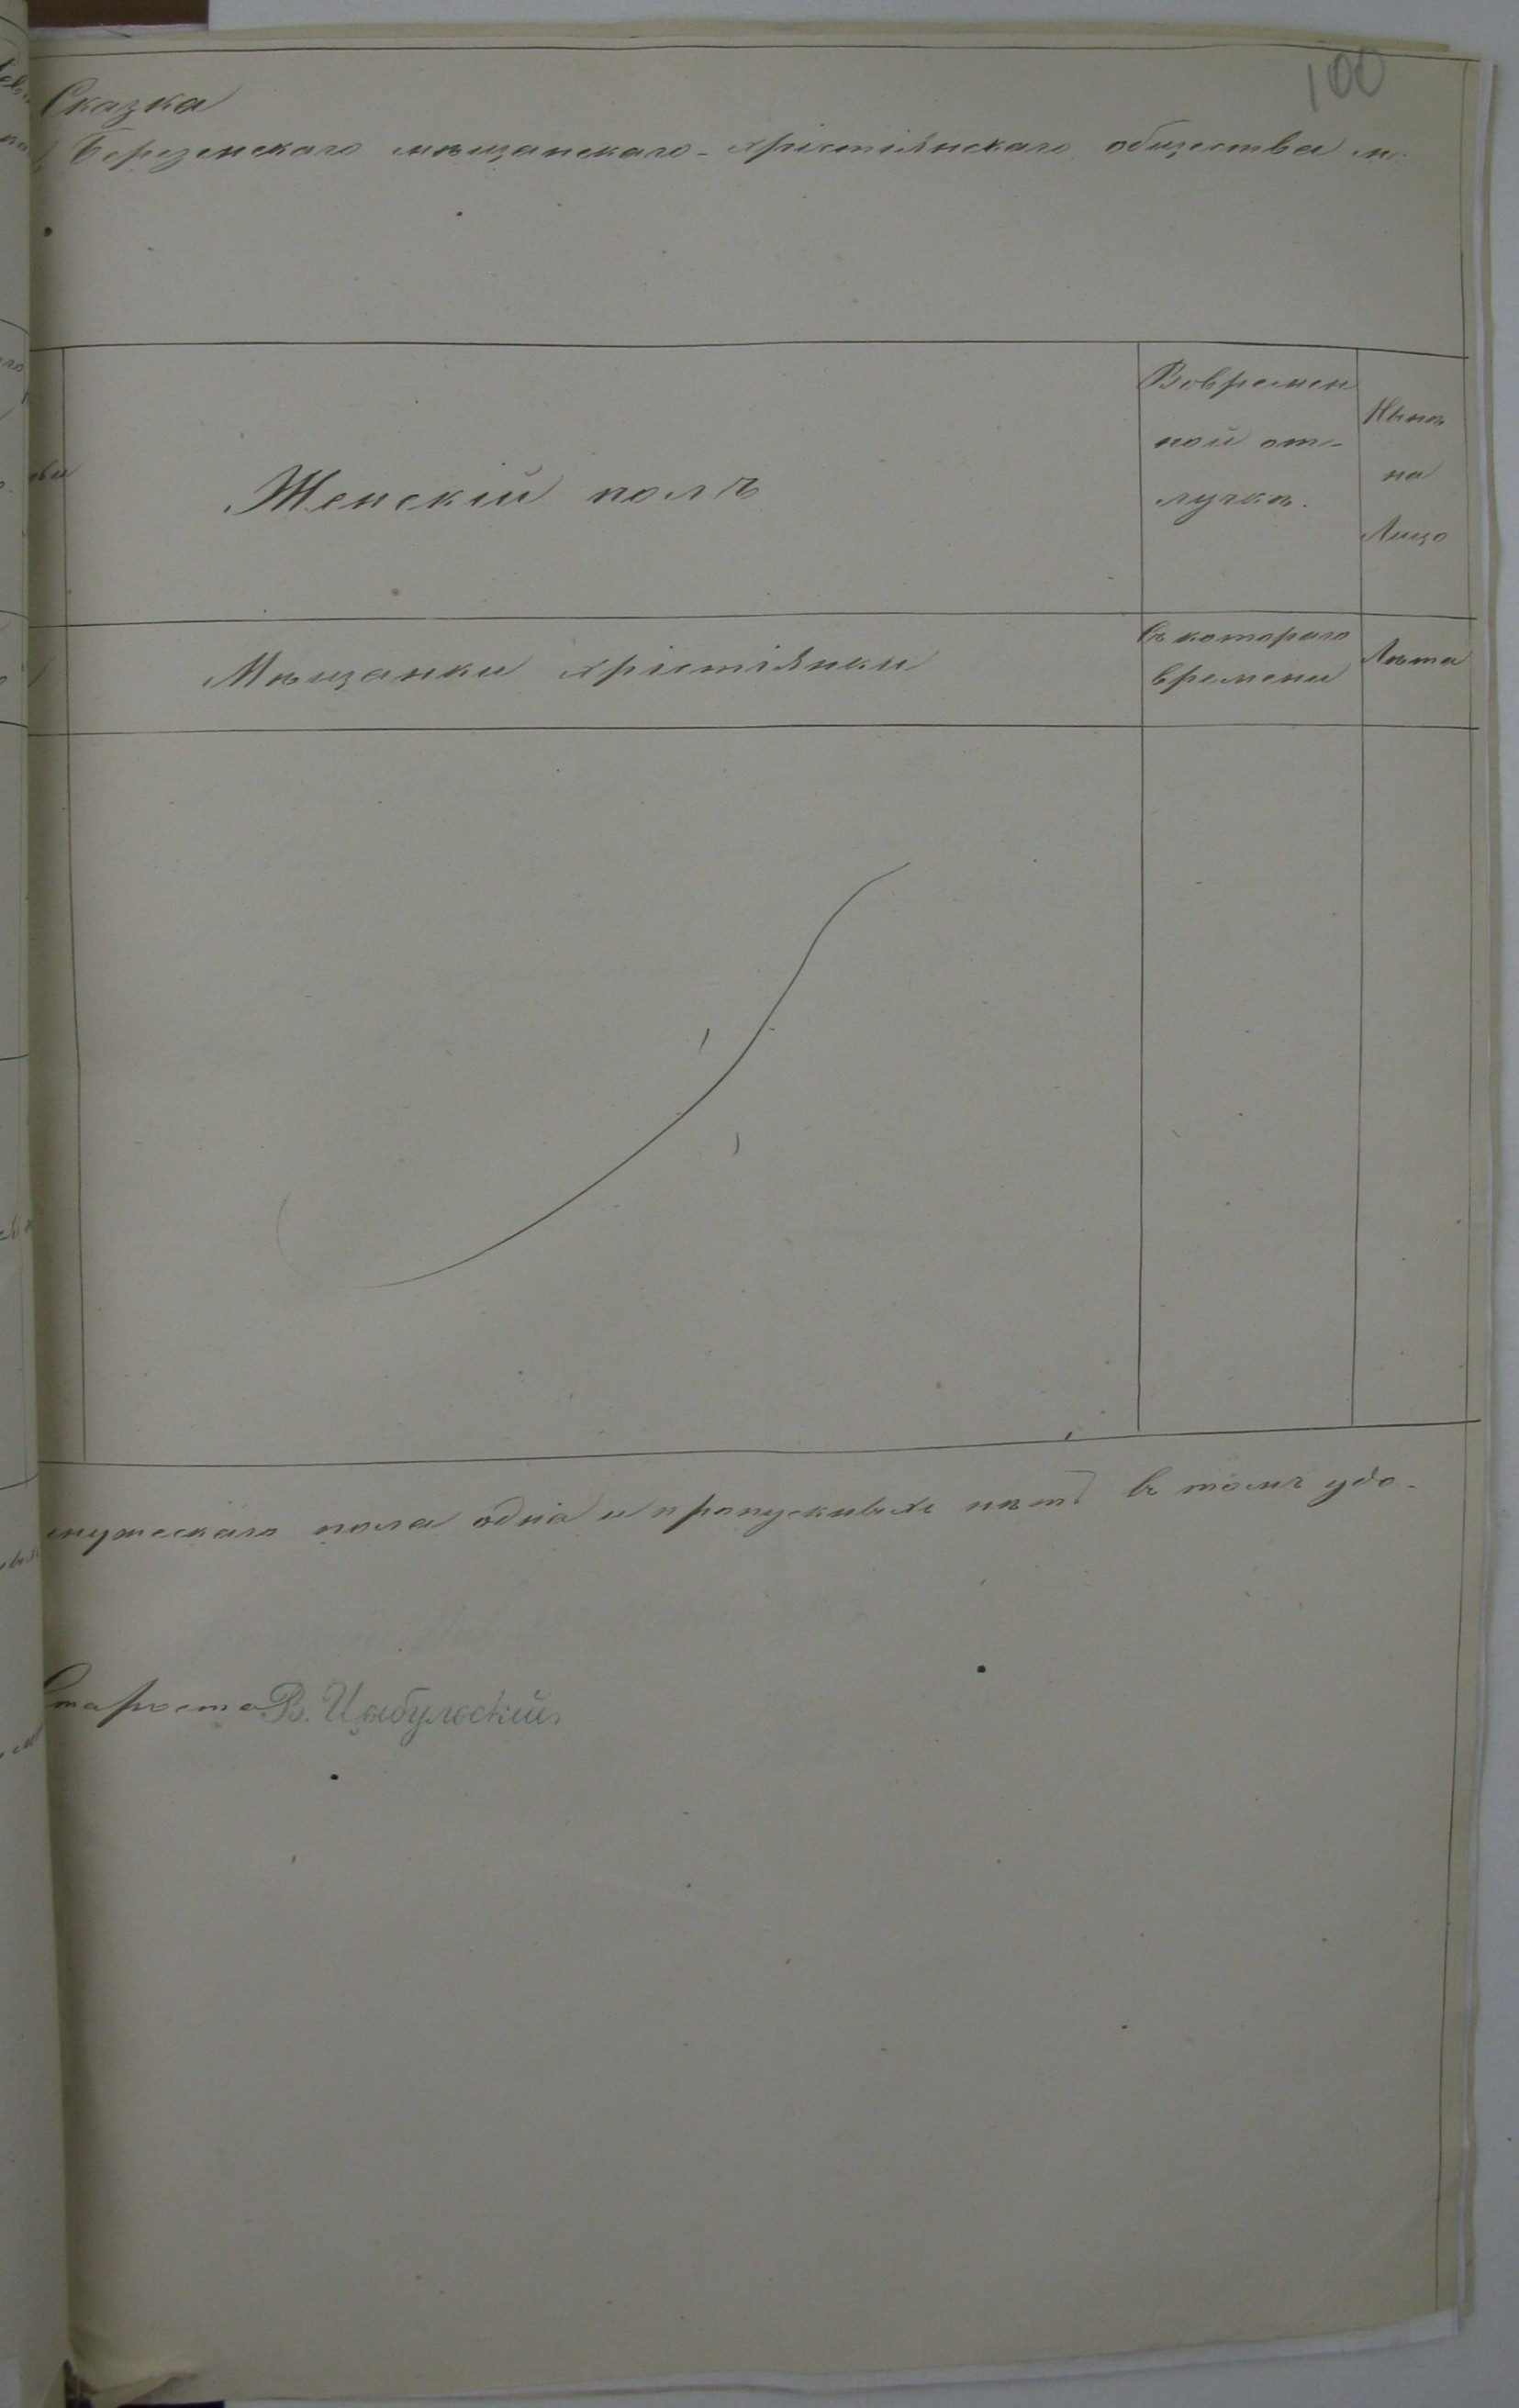 100
Сказка
Березенскаго мѣщанскаго-хрістіянскаго общества м.
Женскій полъ
Вовремен
ной от-
лучкѣ.
Нынѣ
на
Лицо
Мѣщанки хрістіянки
Съ котораго
времени
Лѣта
мужескаго пола одна и пропускныхъ нѣтъ въ томъ удо-
Староста В. Цыбульскій